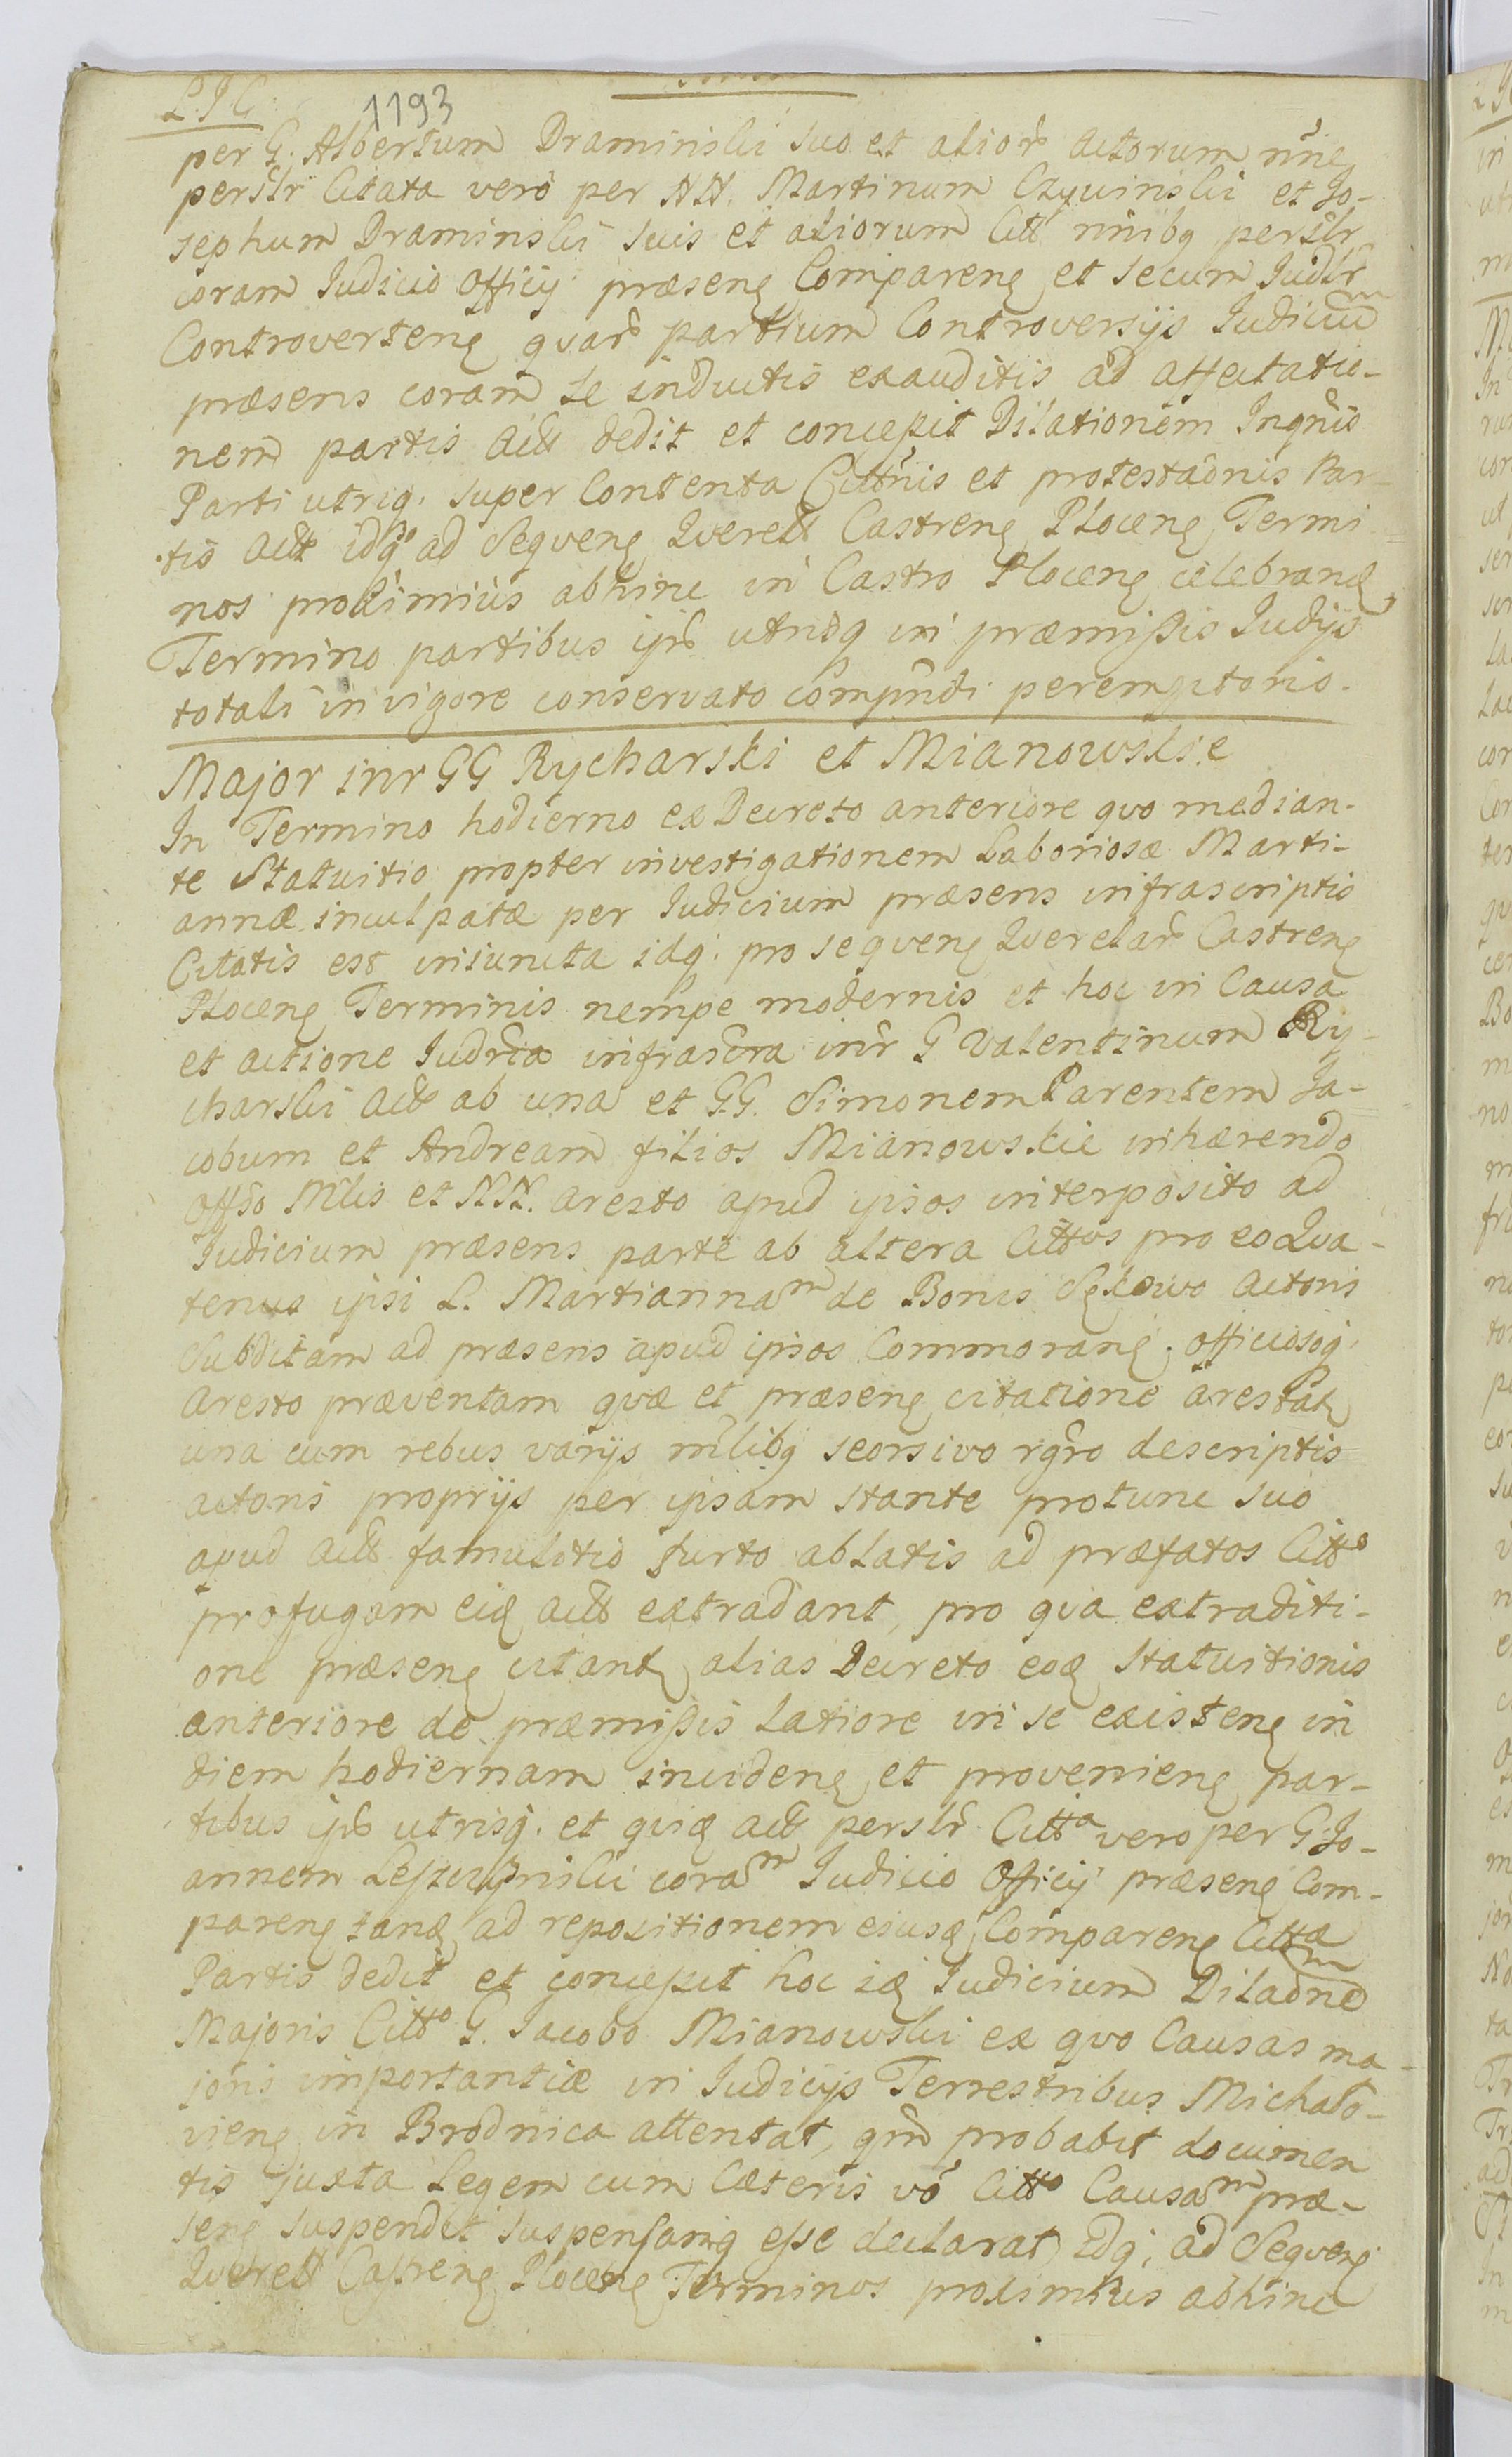 L. J C
1193
per G. Albertum Draminski suo et alior actorum nne
perslr Citata vero per NN. Martinum Czyvinski et Jo-
sephum Draminski suis et aliorum Citt nnibq perslr
coram Judicio Officij præsenę Comparenę et secum Judlr
Controvertenę qvar partium Controversijs Judicium
præsens coram se inductis exauditis ad affectatio-
nem partis Actt dedit et concepit Dilationem Inqnis
Parti utriq. super Contenta Cittnis et protestaonis Par-
tis Actt idq ad Seqvenę Qverell Castrenę Plocenę Termi-
nos proximius abhinc in Castro Plocenę celebrandę
Termino partibus ijs utrisq in præmissis Judijs
totali in vigore conservato compndi peremptorio.
Major inr GG Rycharski et Mianowskie
In Termino hodierno ex Decreto anteriore qvo median-
te Statuitio propter investigationem Laboriosæ Marti-
annæ inculpatæ per Judicium præsens infrascriptis
Citatis est iniuncta idq. pro seqvenę Qverelar Castrenę
Plocenę Terminis nempe modernis et hoc in Causa
et actione Judria infrascra inr G Valentinum Ry-
charski Actt ab una et GG. Simonem Parentem Ja-
cobum et Andream filios Mianowskie inhærendo
Offso Mlis et NN. aresto apud ipsos interposito ad
Judicium præsens parte ab altera Cittos pro eo Qva-
tenus ipsi L. Martiannam de Bonis Sękowo actoris
Subditam ad præsens apud ipsos Commoranę. officiosoq.
Aresto præventam qvæ et præsenę citatione arestatę
una cum rebus varijs mlibq seorsivo rgro descriptis
actoris proprijs per ipsam stante protunc suo
apud Actt famulitio furto ablatis ad præfatos Citto
profugam eię Actt extradant, pro qva extraditi-
one præsenę citantę alias Decreto eoę Statuitionis
anteriore de præmissis Latiore in se existenę in
diem hodiernam incidenę et provenienę par-
tibus ijs utrisq. et qvię Actt perslr Citta vero per G. Jo-
annem coram Judicio Officij præsenę Com-
parenę tanę ad repositionem eiusę Comparenę Citta
Partis dedit et concepit hoc ię Judicium Dilaonem
Majoris Citto G. Jacobo Mianowski ex qvo Causas ma-
joris importantiæ in Judicijs Terrestribus Michało-
vienę in Brodnica attentat, qm probabit documen
tis juxta Legem cum Cæteris vo Citto Causam præ-
senę suspendit suspensamq esse declarat, Idq. ad Seqvenę
Qverell Castrenę Plocenę Terminos proximius abhinc